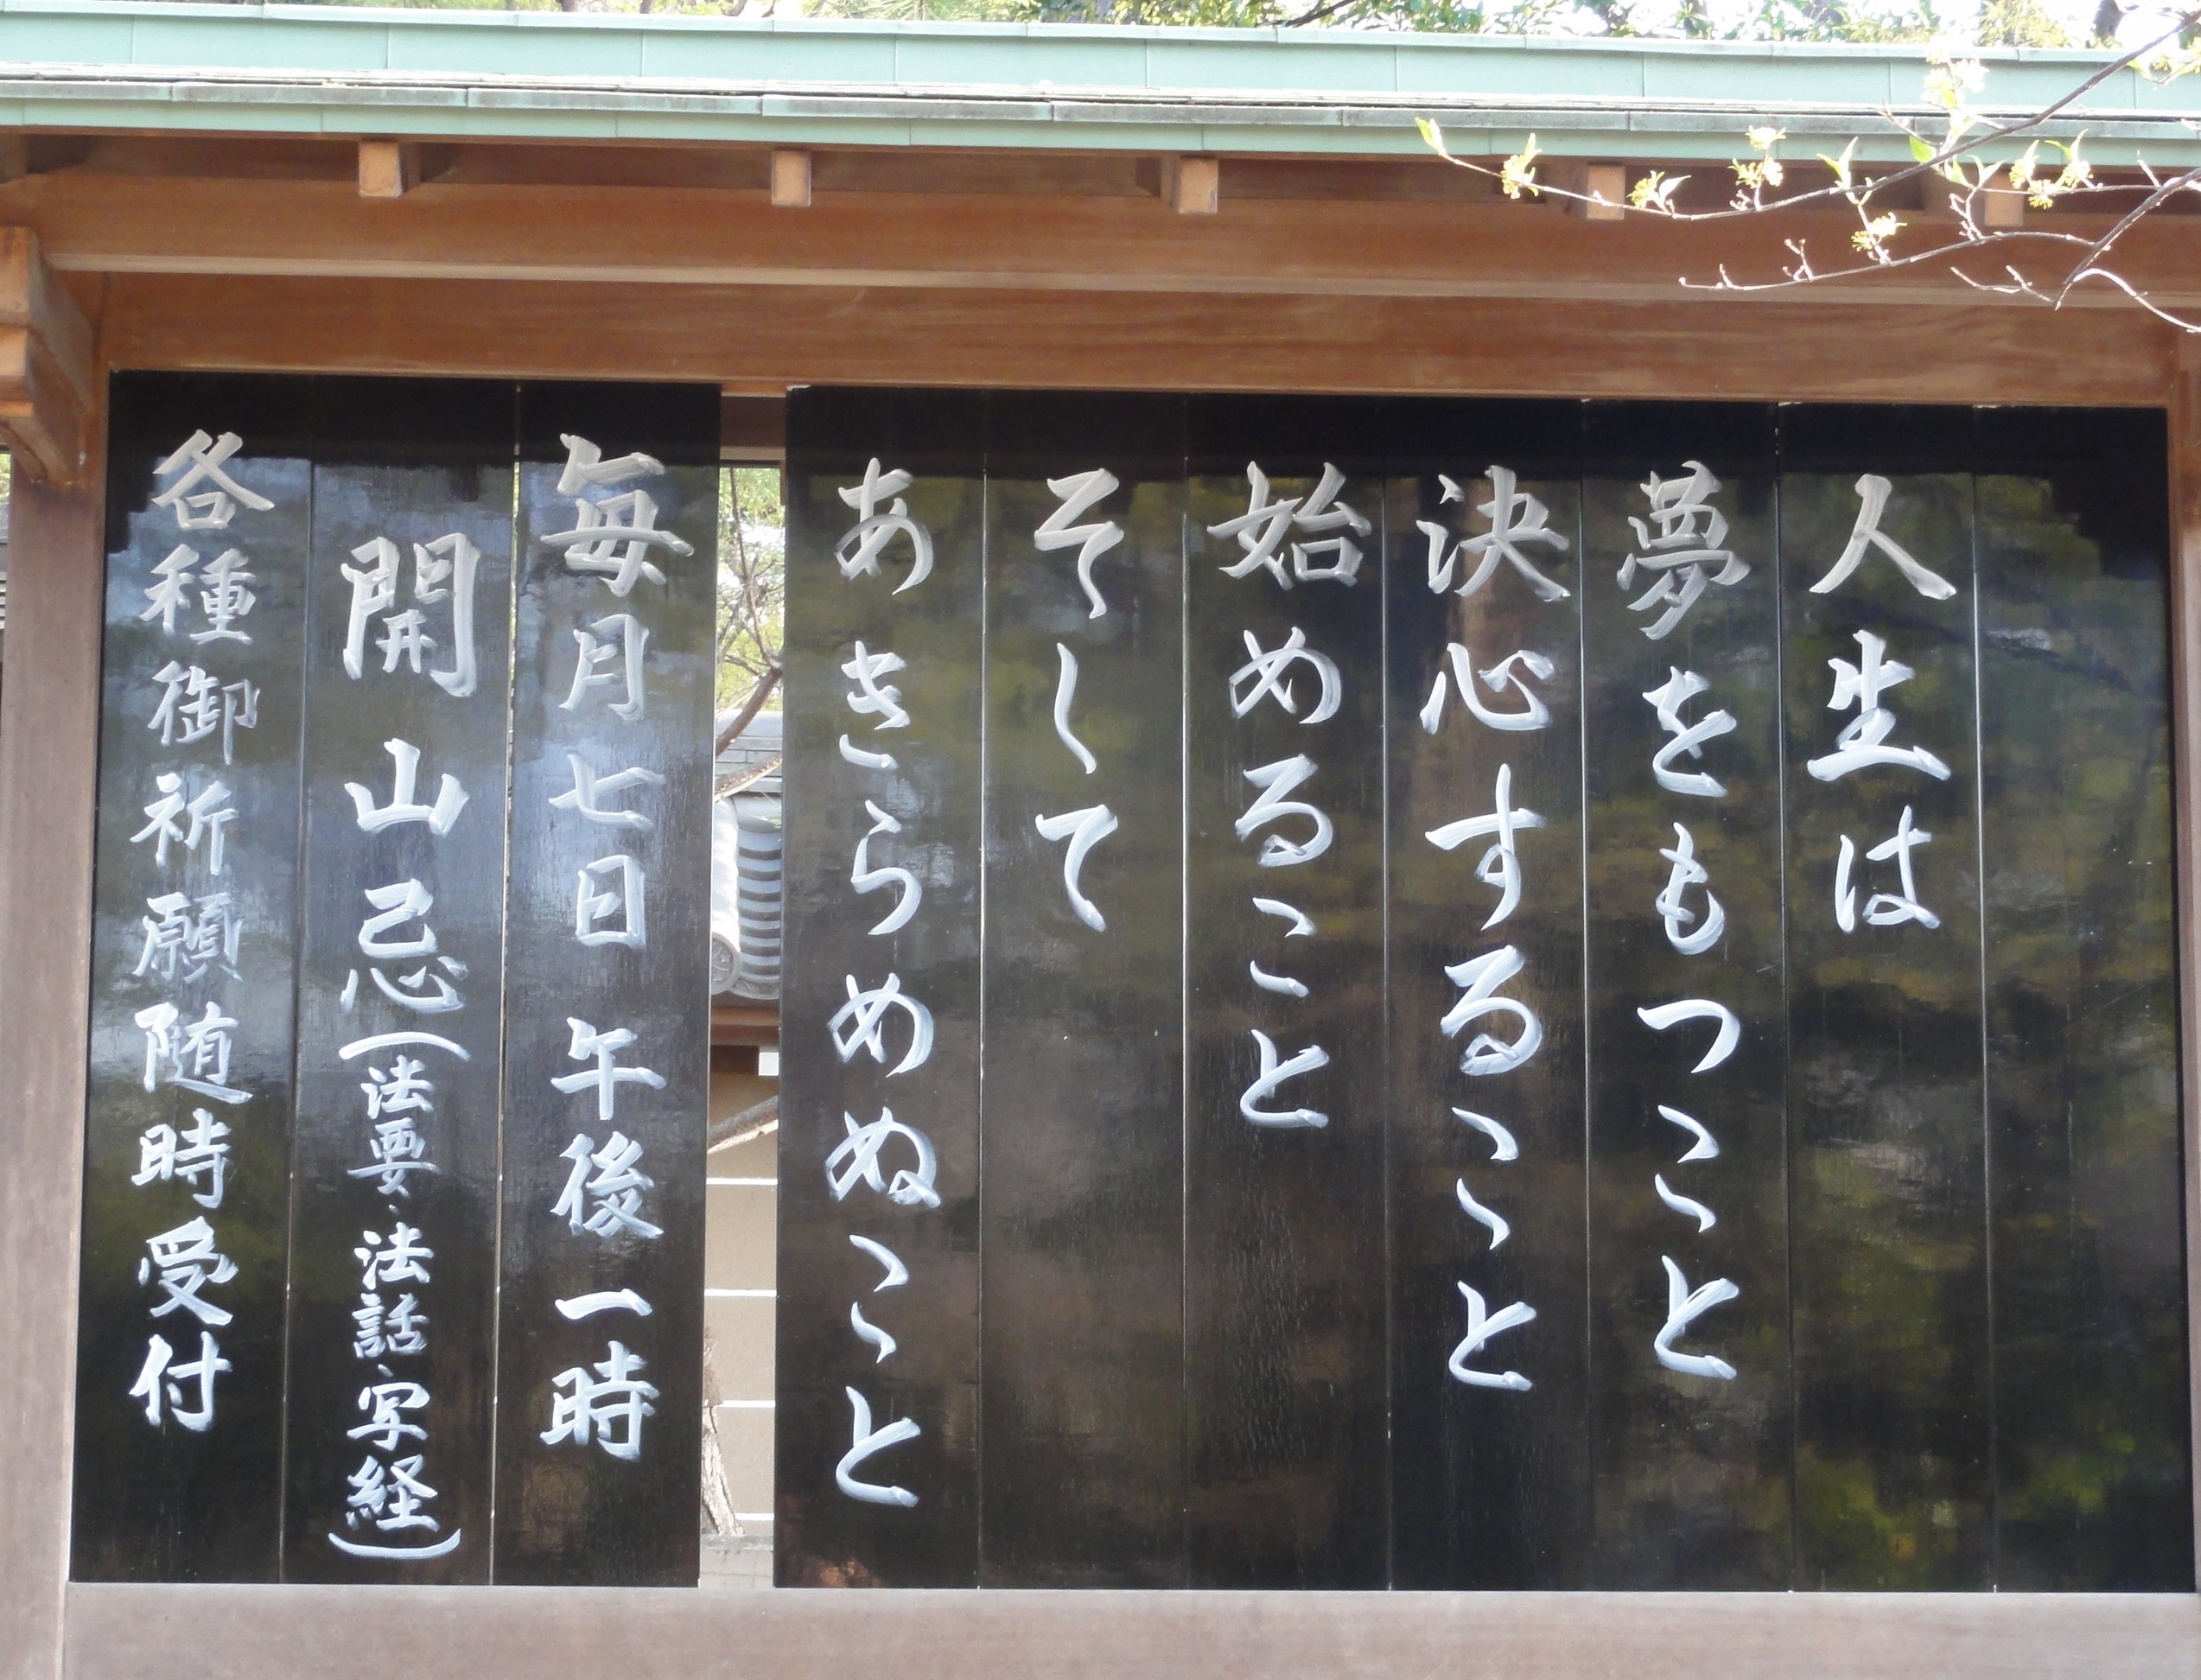 人生は
夢をもつこと
決心すること
始めること
そして
あきらめぬこと
毎月七日 午後一時
開山忌(法要、法話、写経)
各種御祈願随時受付